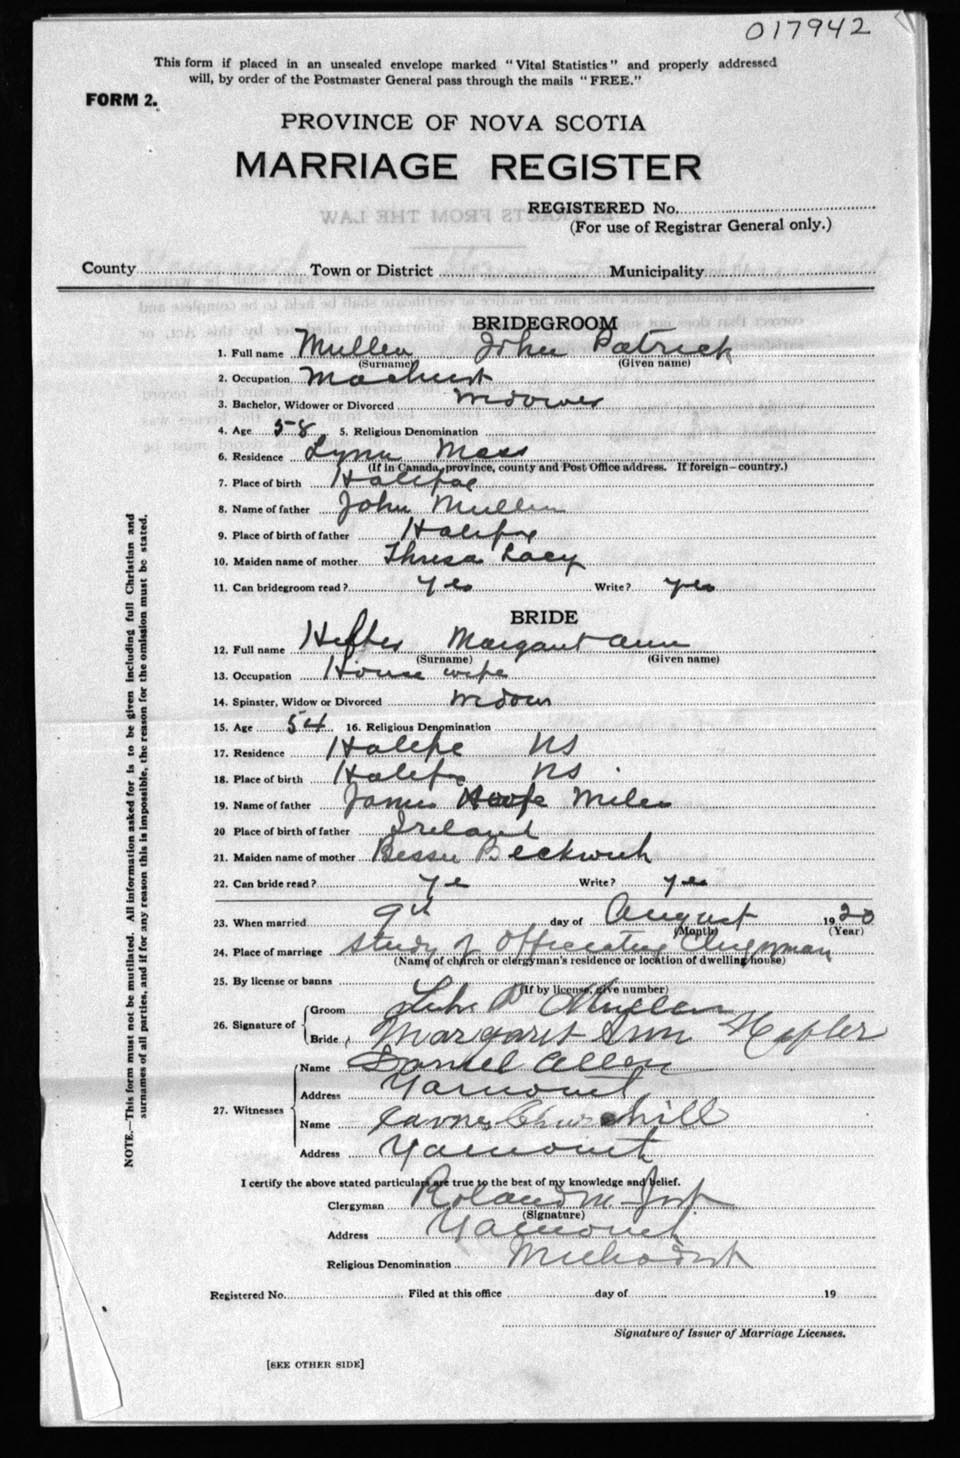 017942
This form if placed in an unsealed envelope marked "Vital Statistics" and properly addressed
will, by order of the Postmaster General pass through the mails "FREE."
FORM 2.
PROVINCE OF NOVA SCOTIA
MARRIAGE REGISTER
REGISTERED No.
(For use of Registrar General only.)
County Town or District Municipality
BRIDEGROOM
1. Full name Mullen John Patrick
(Surname) (Given name)
2. Occupation Machinist
3. Bachelor, Widower or Divorced Widower
4. Age 58 5. Religious Denomination
6. Residence Lynn Mass
(If in Canada, province, county and Post Office address. If foreign—country.)
7. Place of birth Halifax
8. Name of father John Mullen
9. Place of birth of father Halifax
10. Maiden name of mother Thresa Lacy
11. Can bridegroom read? Yes Write? Yes
BRIDE
12. Full name Hefler Margaret Ann
(Surname) (Given name)
13. Occupation House wife
14. Spinster, Widow or Divorced Widow
15. Age 54 16. Religious Denomination
17. Residence Halifx NS
18. Place of birth Halifx NS.
19. Name of father James Miles
20 Place of birth of father Ireland
21. Maiden name of mother Bessie Beckwith
22. Can bride read? Ye Write? Yes
23. When married 9th day of August 1920
(Month) (Year)
24. Place of marriage Study of Officiating Clergyman
(Name of church or clergyman's residence or location of dwelling house)
25. By license or banns
(If by license, give number)
26. Signature of Groom John P Mullen
Bride Margaret Ann Hefler
27. Witnesses Name Daniel Allen
Address Yarmouth
Name James Churchill
Address Yarmouth
I certify the above stated particulars are true to the best of my knowledge and belief.
Clergyman Roland M Jost
(Signature)
Address Yarmouth
Religious Denomination Methodist
Registered No. Filed at this office day of 19
Signature of Issuer of Marriage Licenses.
[SEE OTHER SIDE]
NOTE.—This form must not be mutilated. All information asked for is to be given including full Christian and
surnames of all parties, and if for any reason this is impossible, the reason for the omission must be stated.